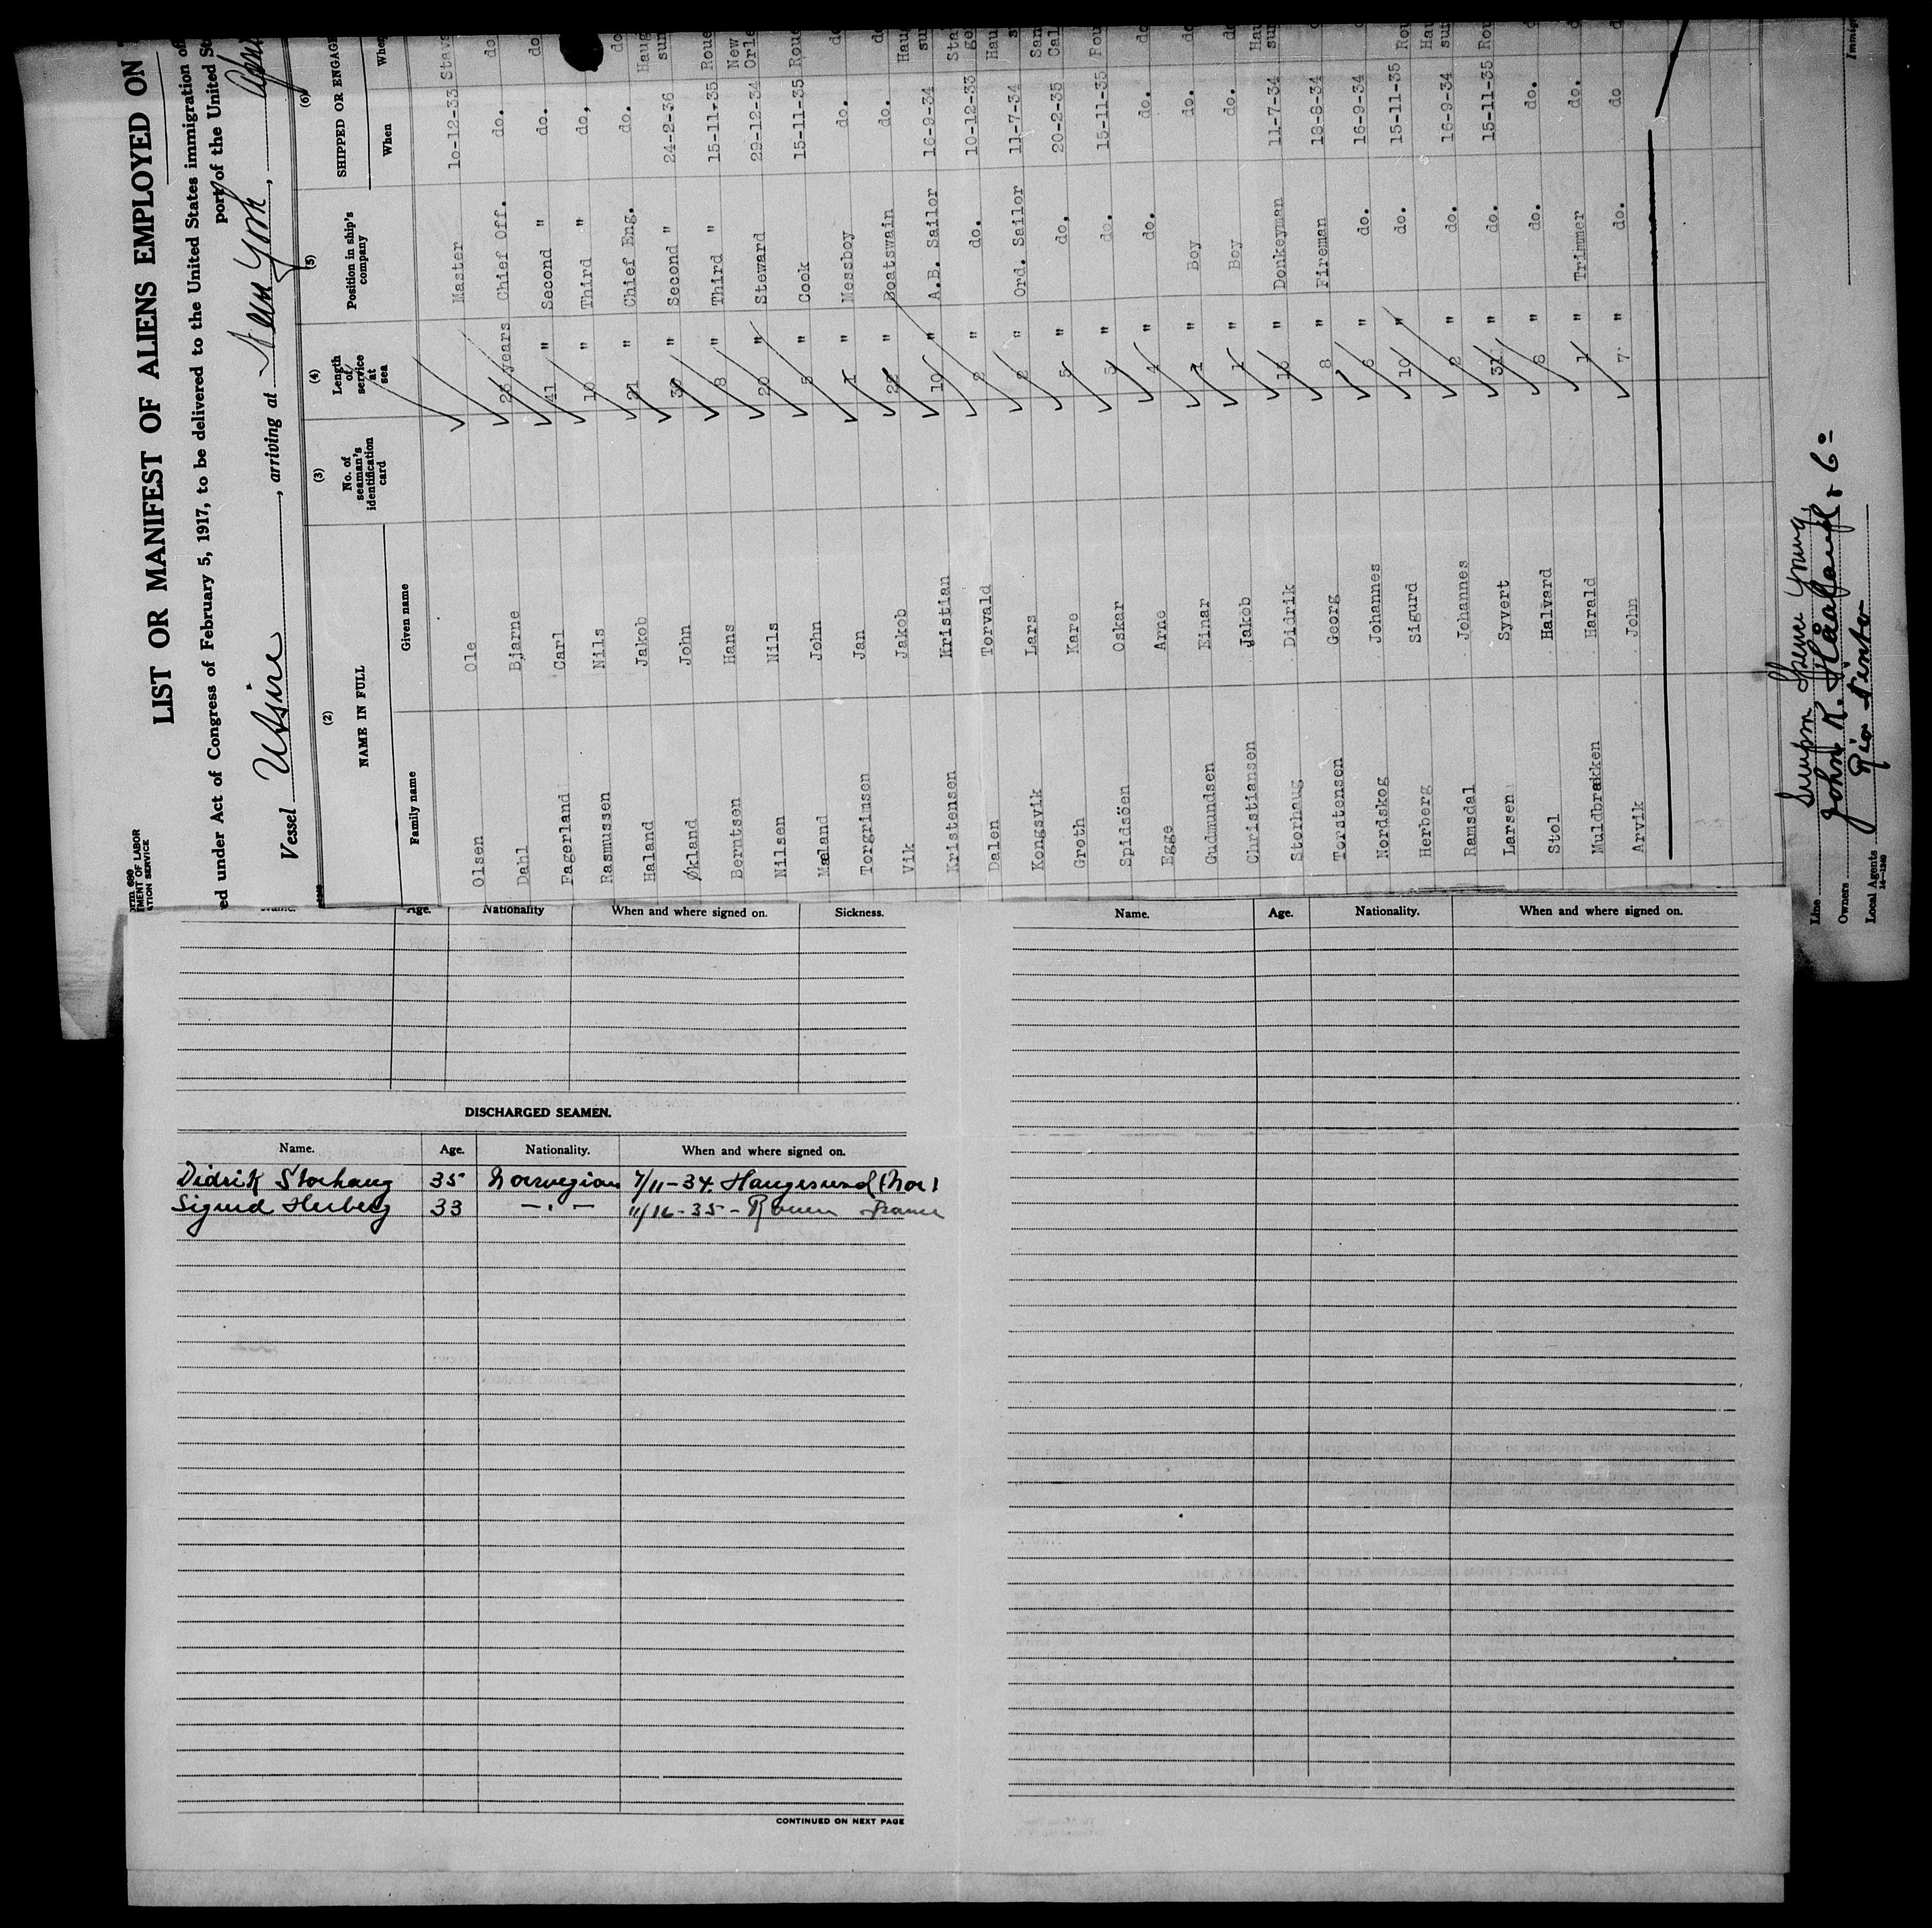 LIST OR MANIFEST OF ALIENS EMPLOYED ON
ed under Act of Congress of February 5, 1917, to be delivered to the United States immigration of
port of the United St
Vessel Utsire, arriving at New York,
(2) (3) (4) (5) (6)
NAME IN FULL No. of seaman's identification card Length of service at sea Position in ship's company SHIPPED OR ENGAGE
Family name Given name When Whe
Olsen Ole Master 10-12-33 Stava
Dahl Bjarne 25 years Chief Off. do. do
Fagerland Carl 41 " Second " do. do
Rasmussen Nils 10 " Third " do,
Haland Jakob 21 " Chief Eng. do. do
Økland John " Second " 24-2-36 Haug sun
Berntsen Hans 8 " Third " 15-11-35 Roue
Nilsen Nils 20 " Steward 29-12-34 New Orle
Mæland John 5 " Cook 15-11-35 Roue
Torgrimsen Jan 1 " Messboy do. do
Vik Jakob 22 " Boatswain do. do
Kristensen Kristian 10 " A.B. Sailor 16-9-34 Hau su
Dalen Torvald 2 " do. 10-12-33 Sta ge
Kongsvik Lars 2 " Ord. Sailor 11-7-34 Hau s
Groth Kare 5 " do. 20-2-35 San Cal
Spidsöen Oskar " do. 15-11-35 Rou
Egge Arne 4 " do. do. do
Gudmundsen Einar 1 " Boy do. do
Christiansen Jakob 1 " Boy do. do
Storhaug Didrik 16 " Donkeyman 11-7-34 Hau sun
Torstensen Georg 8 " Fireman 18-8-34
Nordskog Johannes 6 " do. 16-9-34
Herberg Sigurd 10 " do. 15-11-35 Rou
Ramsdal Johannes 2 " do. 16-9-34 Hau su
Larsen Syvert 31 " do. 15-11-35 Rou
Stol Halvard 8 " do. do. d
Muldbrækken Harald 1 " Trimmer do. d
Arvik John 7 " do. do d
Line Simpson Spence Young
Owners John K. Haaland & Co
Local Agents Rio Tinto
14-1240
Immigr
Age. Nationality When and where signed on. Sickness.
Name. Age. Nationality. When and where signed on.
DISCHARGED SEAMEN.
Name. Age. Nationality. When and where signed on.
Didrik Storhaug 35 Norwegian 7/11-34. Haugesund (Nor)
Sigurd Herberg 33 —.— 11/16-35 - Rouen France
CONTINUED ON NEXT PAGE